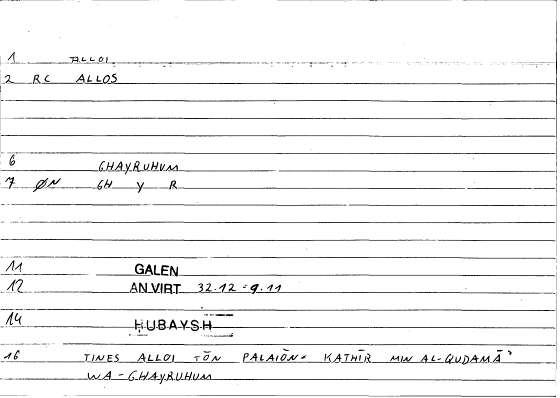 1 ALLOI
2 RC ALLOS
6 GHAYRUHUM
7 ØN GH Y R
11 GALEN
12 AN.VIRT 32.12 = 9.11
14 HUBAYSH
16 TINES ALLOI TŌN PALAIŌN = KATHĪR MIN AL-QUDAMĀʾ
WA-GHAYRUHUM